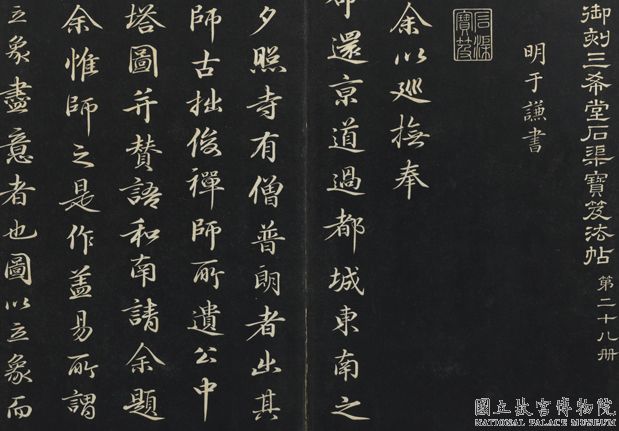 御刻三希堂石渠寶笈法帖 第二十八册
石渠寶笈
明于謙書
余以巡撫奉
還亰道過都城東南之
夕照寺有僧普朗者出其
師古拙俊禪師所遺公中
塔圖并賛語和南請余題
余惟師之是作盖易所謂
立象盡意者也圖以立象而
國立故宮博物院
NATIONAL PALACE MUSEUM